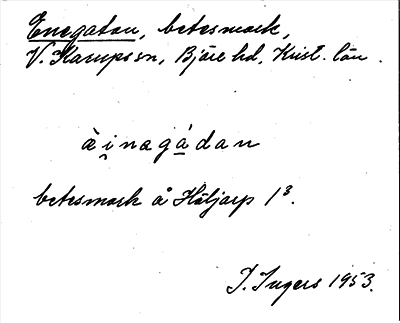 Enegatan, betesmark,
V. Karups sn, Bjäre hd, Krist. län.
ài̯nagá̱dan
betesmark å Håljarp 1³.
I. Ingers 1953.